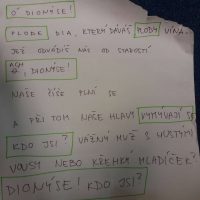 Ó DIONÝSE!
PLODE DIA, KTERÝ DÁVÁŠ PLODY VÍNA.
JEŽ ODVÁDÍŠ NÁS OD STAROSTÍ
ACH, DIONÝSE!
NAŠE ČÍŠE PLNÍ SE
A PŘI TOM NAŠE HLAVY VYMÝVAJÍ SE
KDO JSI? VÁŽNÝ MUŽ S HUSTÝMI
VOUSY NEBO KŘEHKÝ MLADÍČEK?
DIONÝSE! KDO JSI?